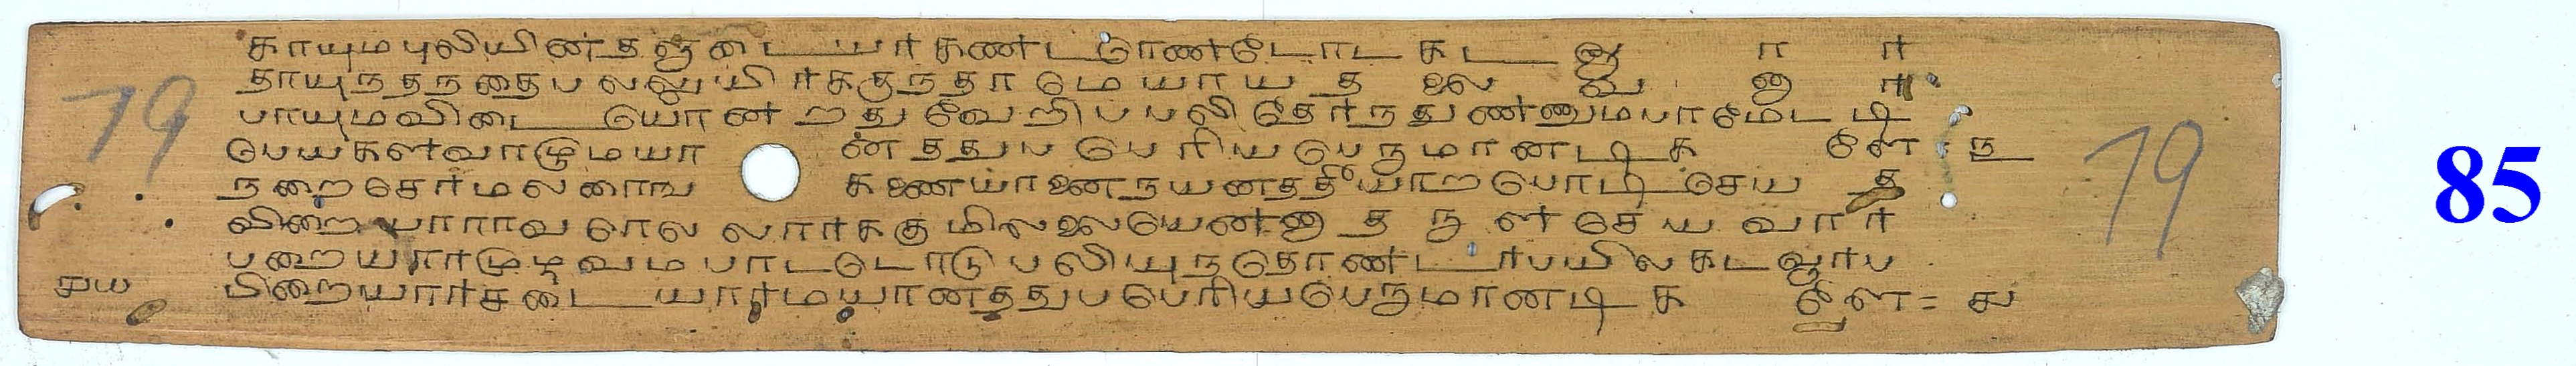 காயுமபுலியினதளுடையர்கண்டரெண்டோடகடவூரா
தாயுநதநதைபலலுயிர்ககுநதாமேயாயதலைவனார்
பாயுமவிடையொன்றதுவேறிபபலிதேர்நதுண்ணுமபரமேடடி
பேயகள்வாழுமயானததுபபெரியபெருமானடிகளே ந
நறைசேர்மலரைங கணையானைநயனததீயாறபொடிசெயத
விறையாராவரெலலார்ககுமிலலையென்னதருள்செயவார்
பறையார்முழவமபாடடோடுபலியுநதொண்டர்பயிலகடவூர்ப
௪௰ பிறையார்சடையார்மயானததுபபெரியபெருமானடிகளே = சு
79 79
85